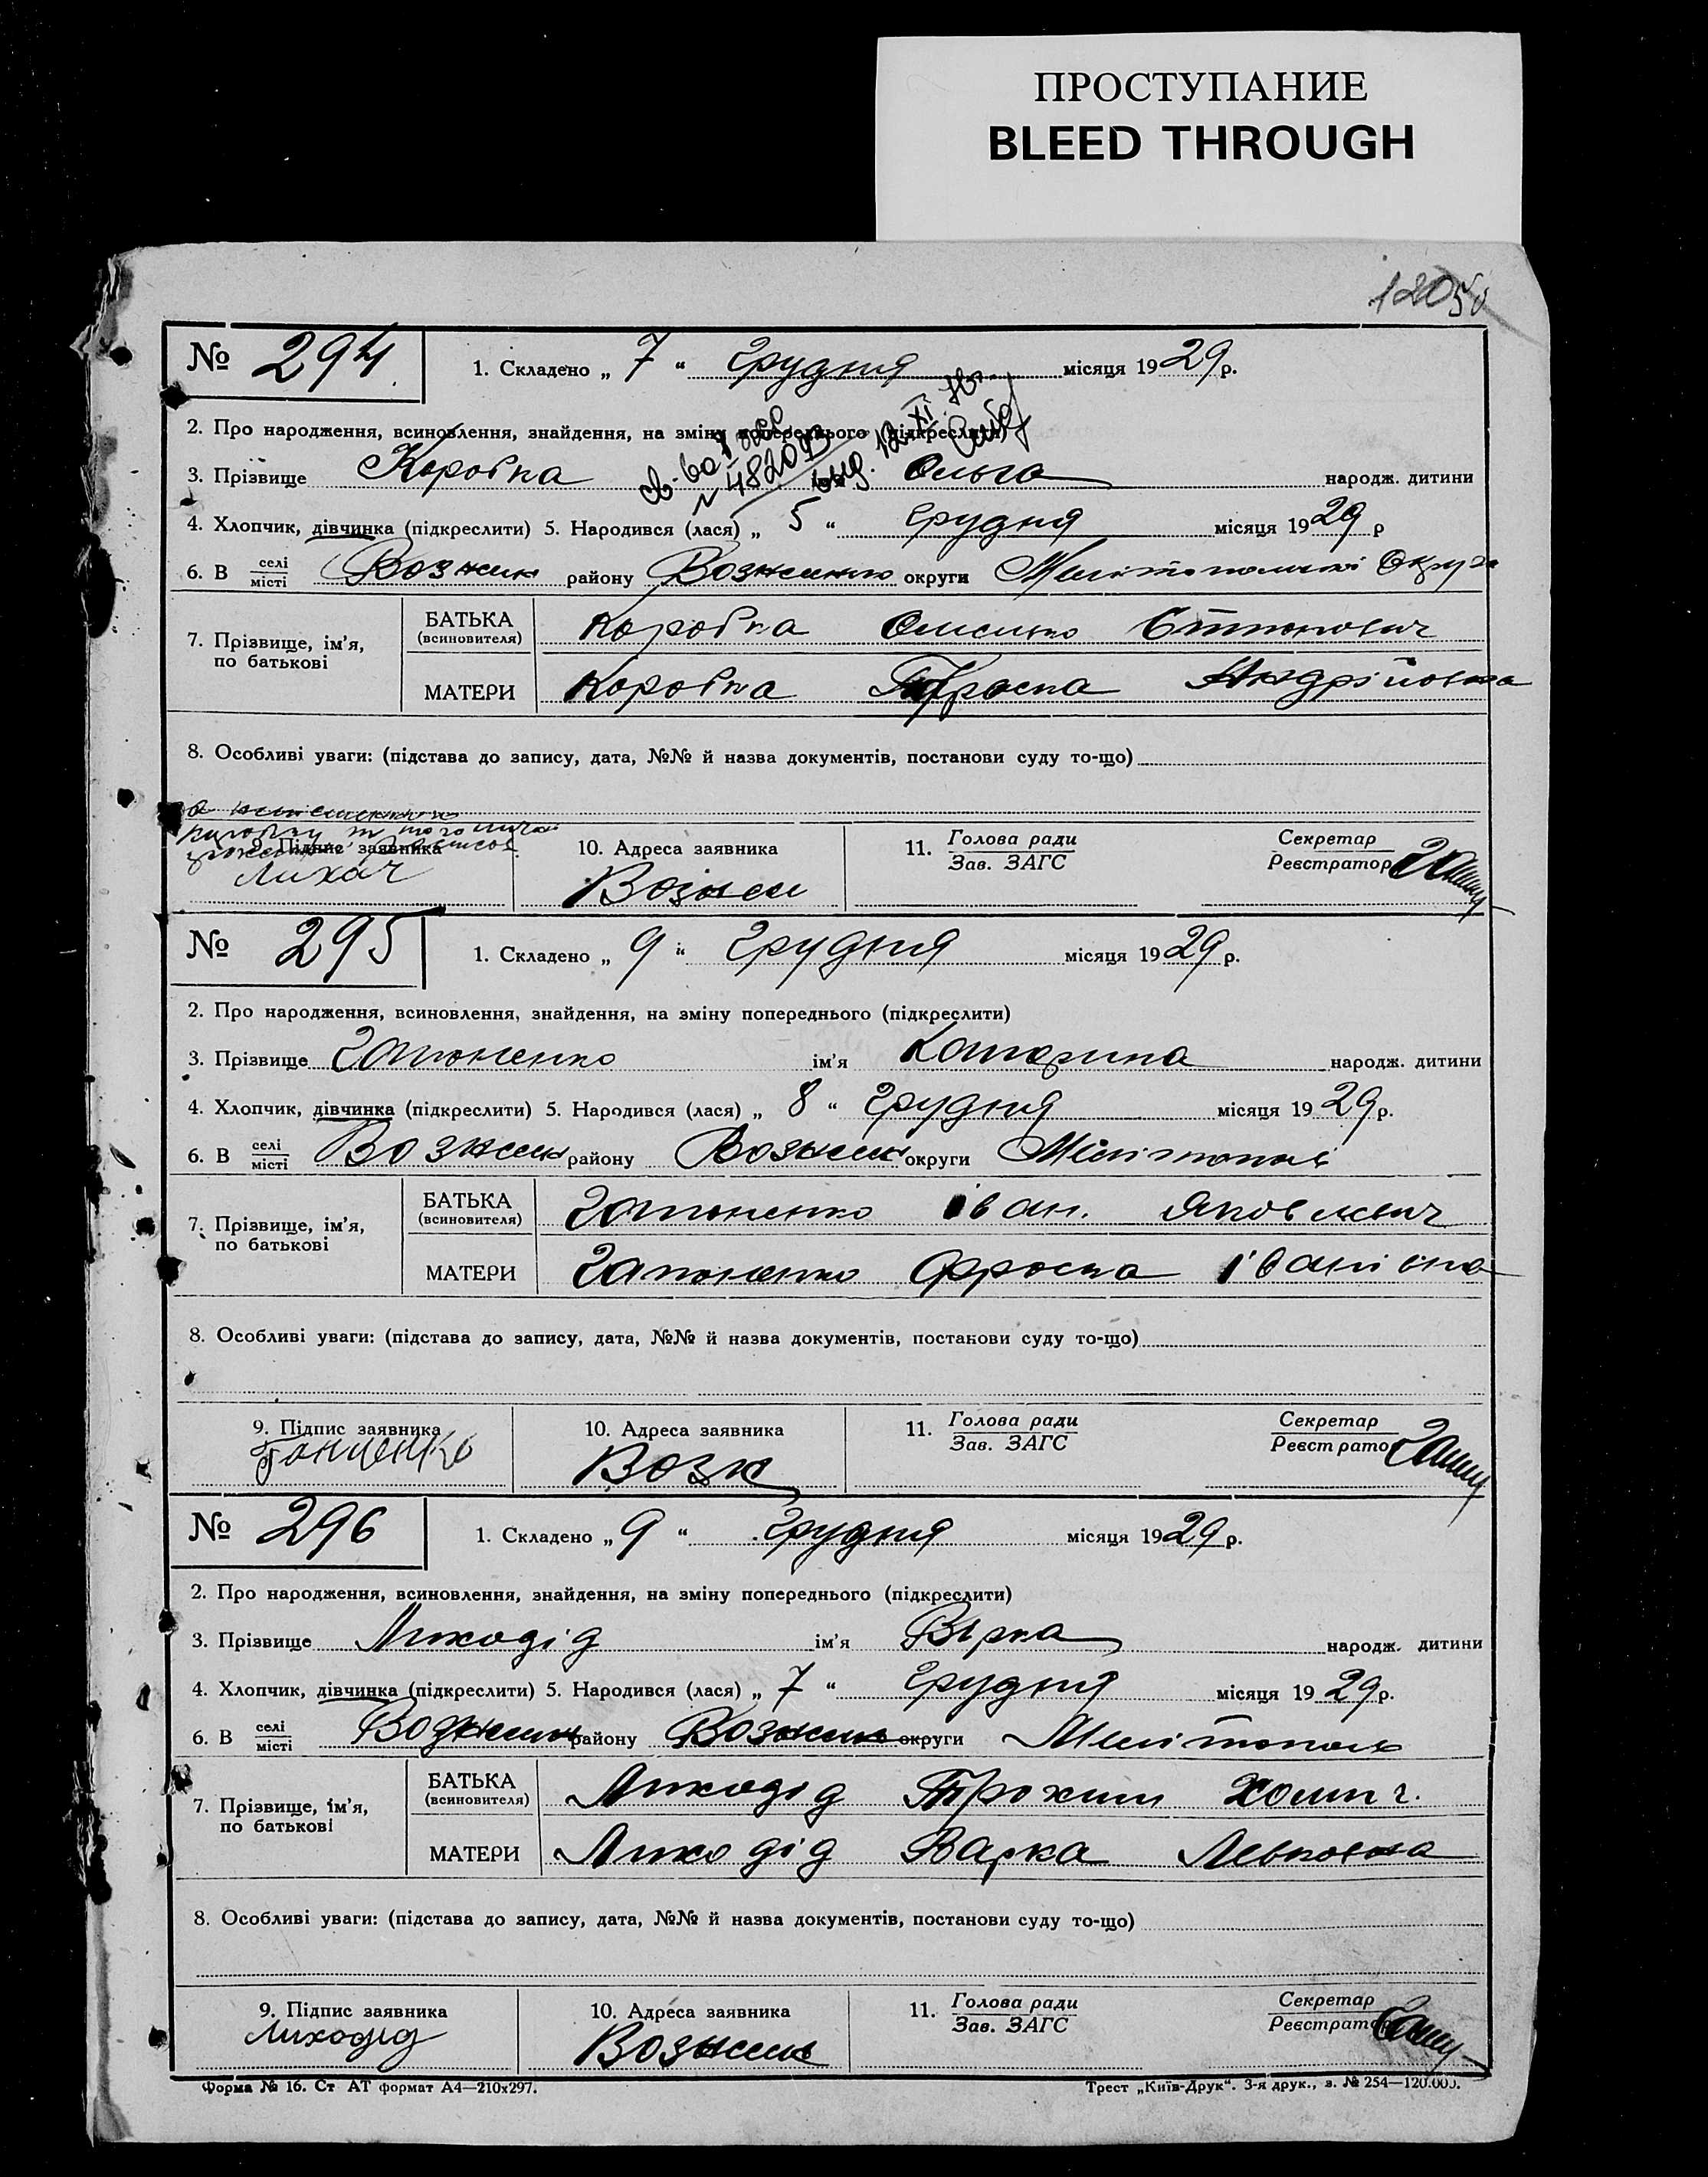 ПРОСТУПАНИЕ
BLEED THROUGH
№ 294. 1. Складено „ 7 “ Грудня місяця 1929 р.
2. Про народження, всиновлення, знайдення, на зміну попереднього (підкреслити)
св-во № 482093 выд. 12 XI
3. Прізвище Коробка Ольга народж. дитини
4. Хлопчик, дівчинка (підкреслити) 5. Народився (лася) „ 5 “ Грудня місяця 1929 р
6. В селі/місті району округи Округа
7. Прізвище, ім'я, по батькові
БАТЬКА (всиновителя) Коробка
МАТЕРИ Коробка Андрійовна
8. Особливі уваги: (підстава до запису, дата, №№ й назва документів, постанови суду то-що)
9. Підпис заявника 10. Адреса заявника 11. Голова ради/Зав. ЗАГС Секретар/Реєстратор
Лихач
№ 295 1. Складено „ 9 “ Грудня місяця 1929 р.
2. Про народження, всиновлення, знайдення, на зміну попереднього (підкреслити)
3. Прізвище Гапоненко ім'я Катерина народж. дитини
4. Хлопчик, дівчинка (підкреслити) 5. Народився (лася) „ 8 “ Грудня місяця 1929 р.
6. В селі/місті Вознесн району Вознесн округи Мелітополь
7. Прізвище, ім'я, по батькові
БАТЬКА (всиновителя) Гапоненко Іван. Яковлевич
МАТЕРИ Гапоненко Фроська Іванівна
8. Особливі уваги: (підстава до запису, дата, №№ й назва документів, постанови суду то-що)
9. Підпис заявника 10. Адреса заявника 11. Голова ради/Зав. ЗАГС Секретар/Реєстратор
Возн
№ 296 1. Складено „ 9 “ Грудня місяця 1929 р.
2. Про народження, всиновлення, знайдення, на зміну попереднього (підкреслити)
3. Прізвище Лиходід ім'я Вірка народж. дитини
4. Хлопчик, дівчинка (підкреслити) 5. Народився (лася) „ 7 “ Грудня місяця 1929 р.
6. В селі/місті Вознесн району Вознесн округи Мелітополь
7. Прізвище, ім'я, по батькові
БАТЬКА (всиновителя) Лиходід Трохим Хомич.
МАТЕРИ Лиходід Варка Левковна
8. Особливі уваги: (підстава до запису, дата, №№ й назва документів, постанови суду то-що)
9. Підпис заявника 10. Адреса заявника 11. Голова ради/Зав. ЗАГС Секретар/Реєстратор
Лиходід Вознесн
Форма № 16. Ст АТ формат А4—210х297. Трест „Київ-Друк“. 3-я друк., з. № 254—120.000.